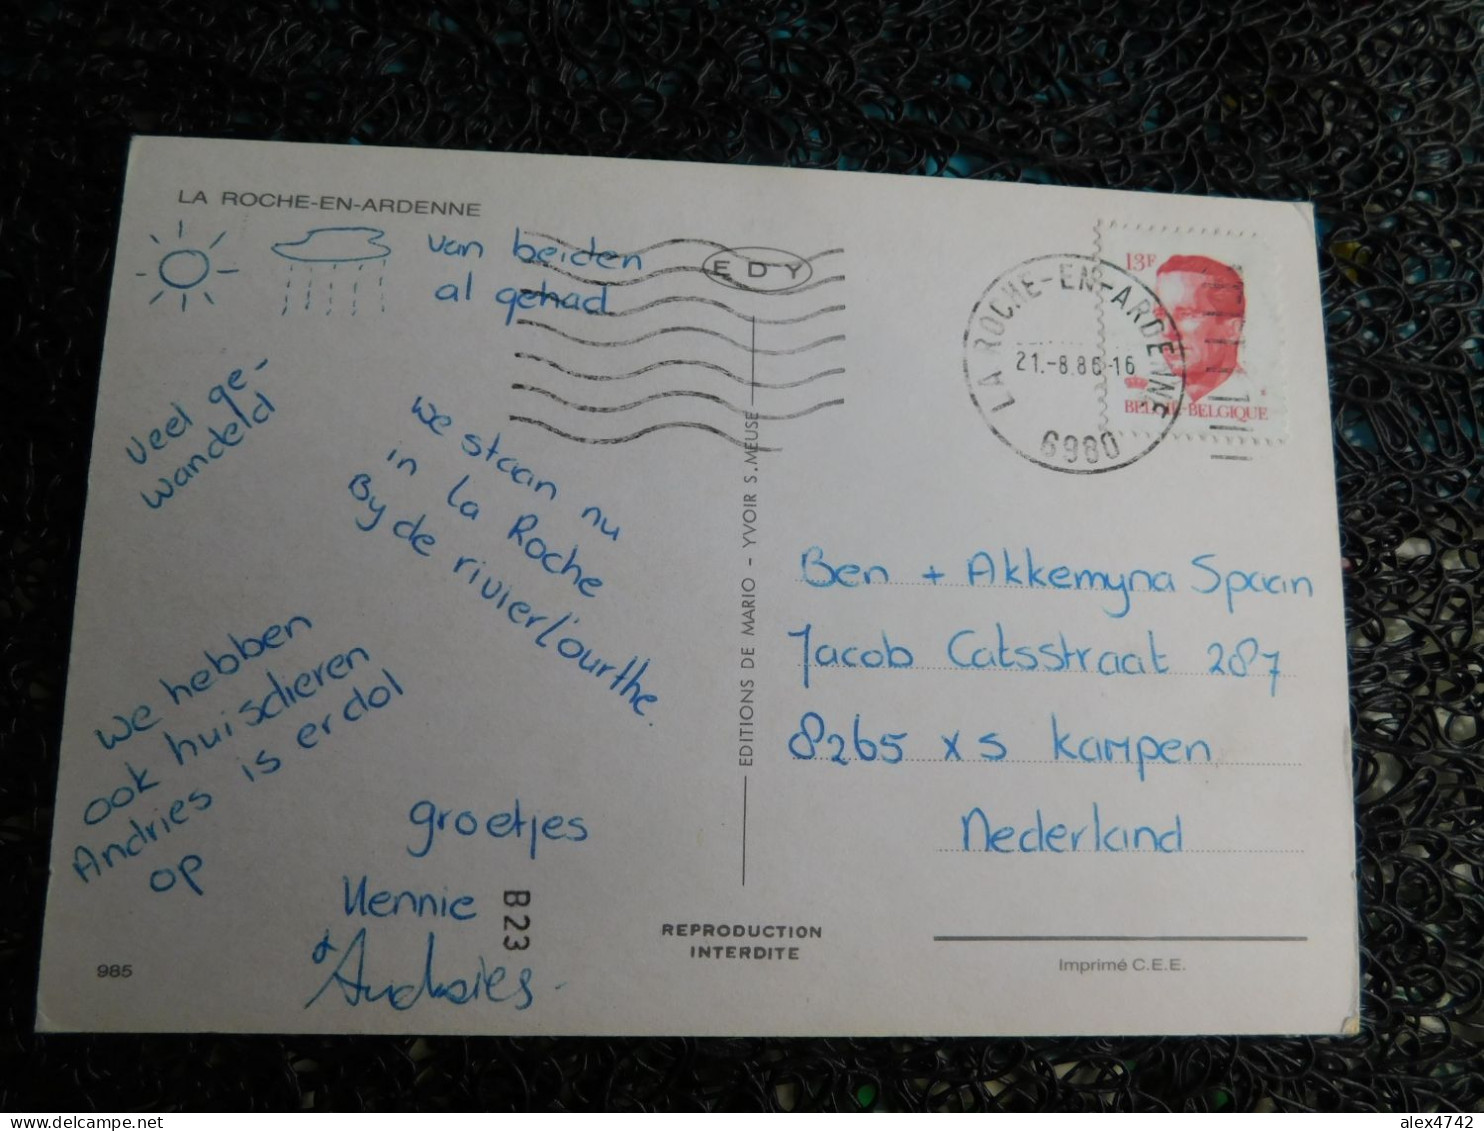 LA ROCHE-EN-ARDENNE
van beiden
al gehad
veel ge-
wandeld
we staan nu
in la Roche
By de rivier l'ourthe.
we hebben
ook huisdieren
Andries is er dol
op
groetjes
Hennie
& Andries
985
B23
EDY
EDITIONS DE MARIO - YVOIR S. MEUSE
REPRODUCTION
INTERDITE
13F
BELGIË-BELGIQUE
LA ROCHE-EN-ARDENNE
21.-8.86-16
6980
Ben + Akkemyna Spaan
Jacob Catsstraat 287
8265 XS Kampen
Nederland
Imprimé C.E.E.
alex4742